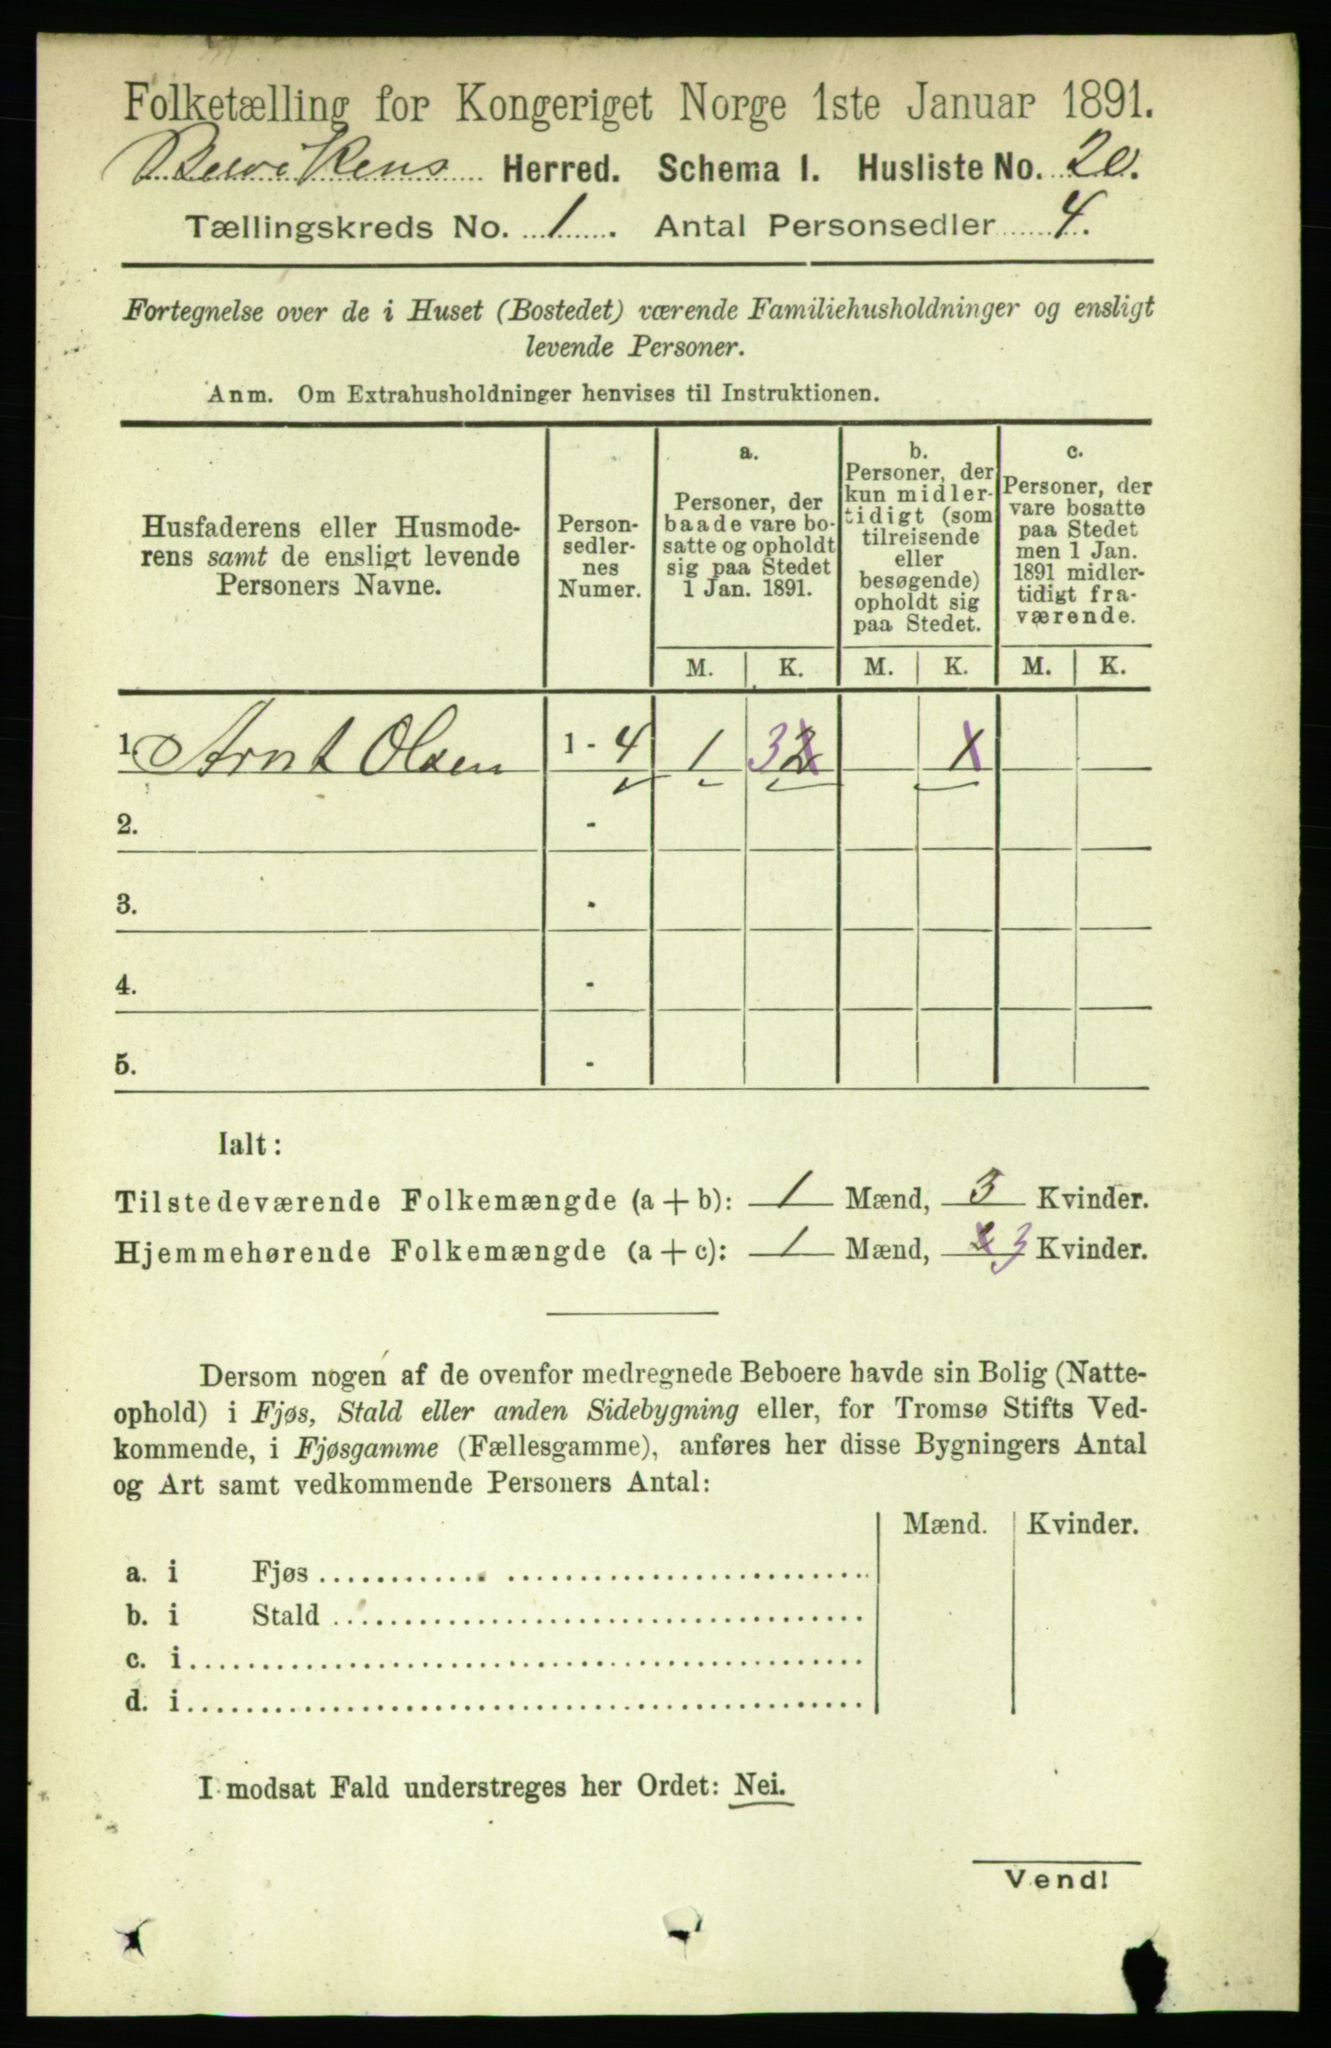 Folketælling for Kongeriget Norge 1ste Januar 1891.
Herred. Schema I. Husliste No. 20.
Tællingskreds No. 1. Antal Personsedler 4.
Fortegnelse over de i Huset (Bostedet) værende Familiehusholdninger og ensligt
levende Personer.
Anm. Om Extrahusholdninger henvises til Instruktionen.
Husfaderens eller Husmode-
rens samt de ensligt levende
Personers Navne.
Person-
sedler-
nes
Numer.
a.
Personer, der
baade vare bo-
satte og opholdt
sig paa Stedet
1 Jan. 1891.
b.
Personer, der
kun midler-
tidigt (som
tilreisende
eller
besøgende)
opholdt sig
paa Stedet.
c.
Personer, der
vare bosatte
paa Stedet
men 1 Jan.
1891 midler-
tidigt fra-
værende.
M. K. M. K. M. K.
1. Arnt Olsen 1 - 4 1 3 2 1
2. -
3. -
4. -
5. -
Ialt:
Tilstedeværende Folkemængde (a + b): 1 Mænd, 3 Kvinder.
Hjemmehørende Folkemængde (a + c): 1 Mænd, 2 3 Kvinder.
Dersom nogen af de ovenfor medregnede Beboere havde sin Bolig (Natte-
ophold) i Fjøs, Stald eller anden Sidebygning eller, for Tromsø Stifts Ved-
kommende, i Fjøsgamme (Fællesgamme), anføres her disse Bygningers Antal
og Art samt vedkommende Personers Antal:
Mænd. Kvinder.
a. i Fjøs
b. i Stald
c. i
d. i
I modsat Fald understreges her Ordet: Nei.
Vend!